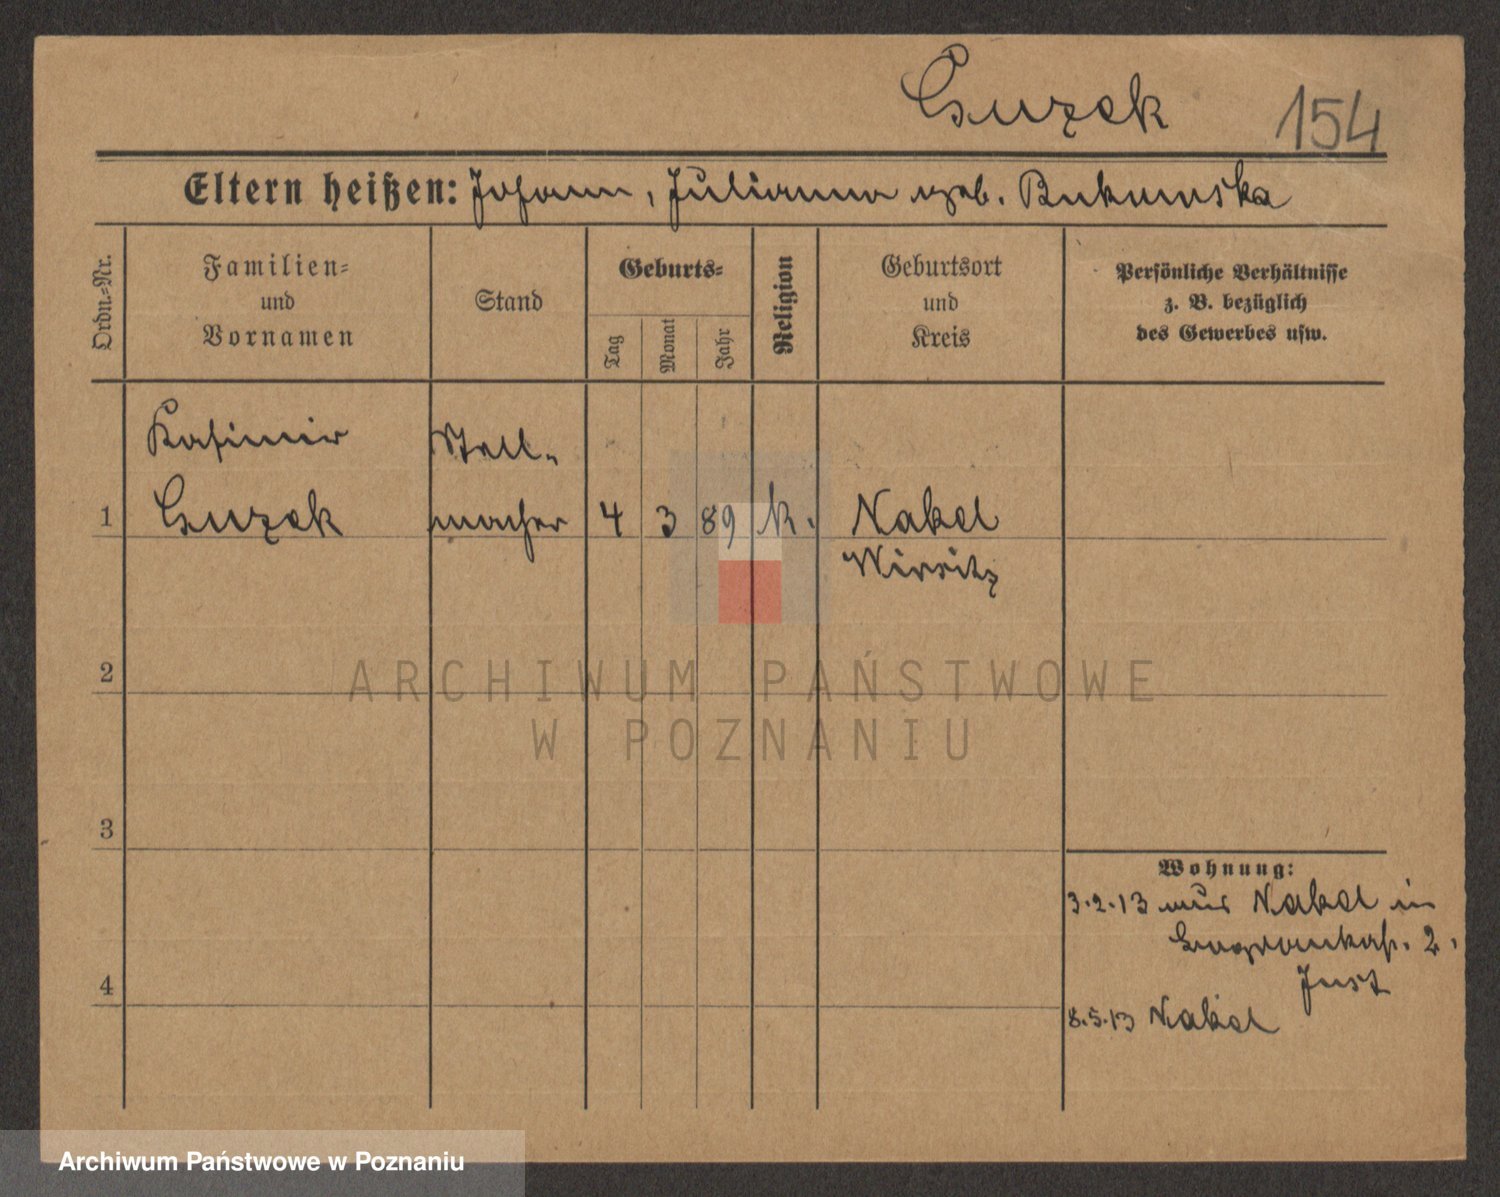 Guzek 154
Eltern heißen: Johann, Julianna geb. Bukowska
Ordn.-Nr.
Familien-
und
Vornamen
Stand
Geburts-
Tag
Monat
Jahr
Religion
Geburtsort
und
Kreis
Persönliche Verhältnisse
z. B. bezüglich
des Gewerbes usw.
Kasimir Stell-
1 Guzek macher 4 3 89 k. Nakel
Wirsitz
2
3
Wohnung:
3.2.13 aus Nakel in
2.
Just
4
8.5.13 Nakel
ARCHIWUM PAŃSTWOWE
W POZNANIU
Archiwum Państwowe w Poznaniu